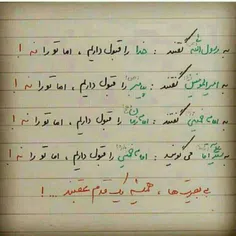 به رسول الله گفتند : خدا را قبول داریم ، اما تو را نه !
به امیرالمومنین گفتند : پیامبر را قبول داریم ، اما تو را نه !
به امام خمینی گفتند : امام زمان را قبول داریم ، اما تو را نه !
به امام می گویند : امام خمینی را قبول داریم ، اما تو را نه !
بی بصیرت ها ، همیشه یک قدم عقبند ... !